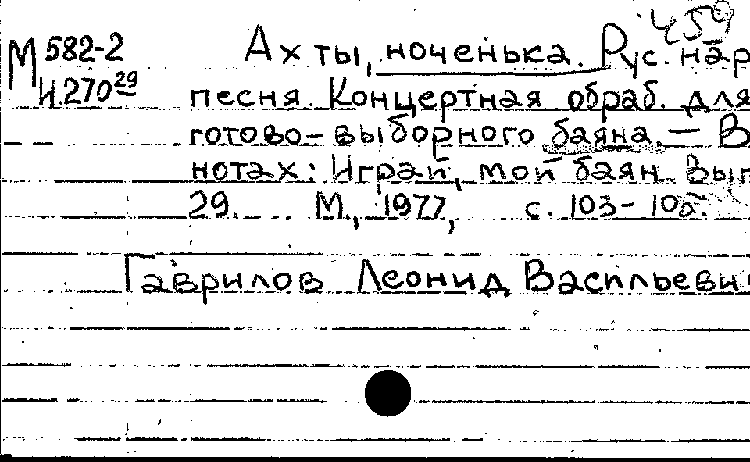 459
М 582-2 Ах ты, ноченька. Рус. нар
И.270 29 песня. Концертная обраб. для
готово-выборного баяна. — В
нотах: Играй, мой баян. Вып
29. М., 1977, с. 103-105.
Гаврилов Леонид Васильеви